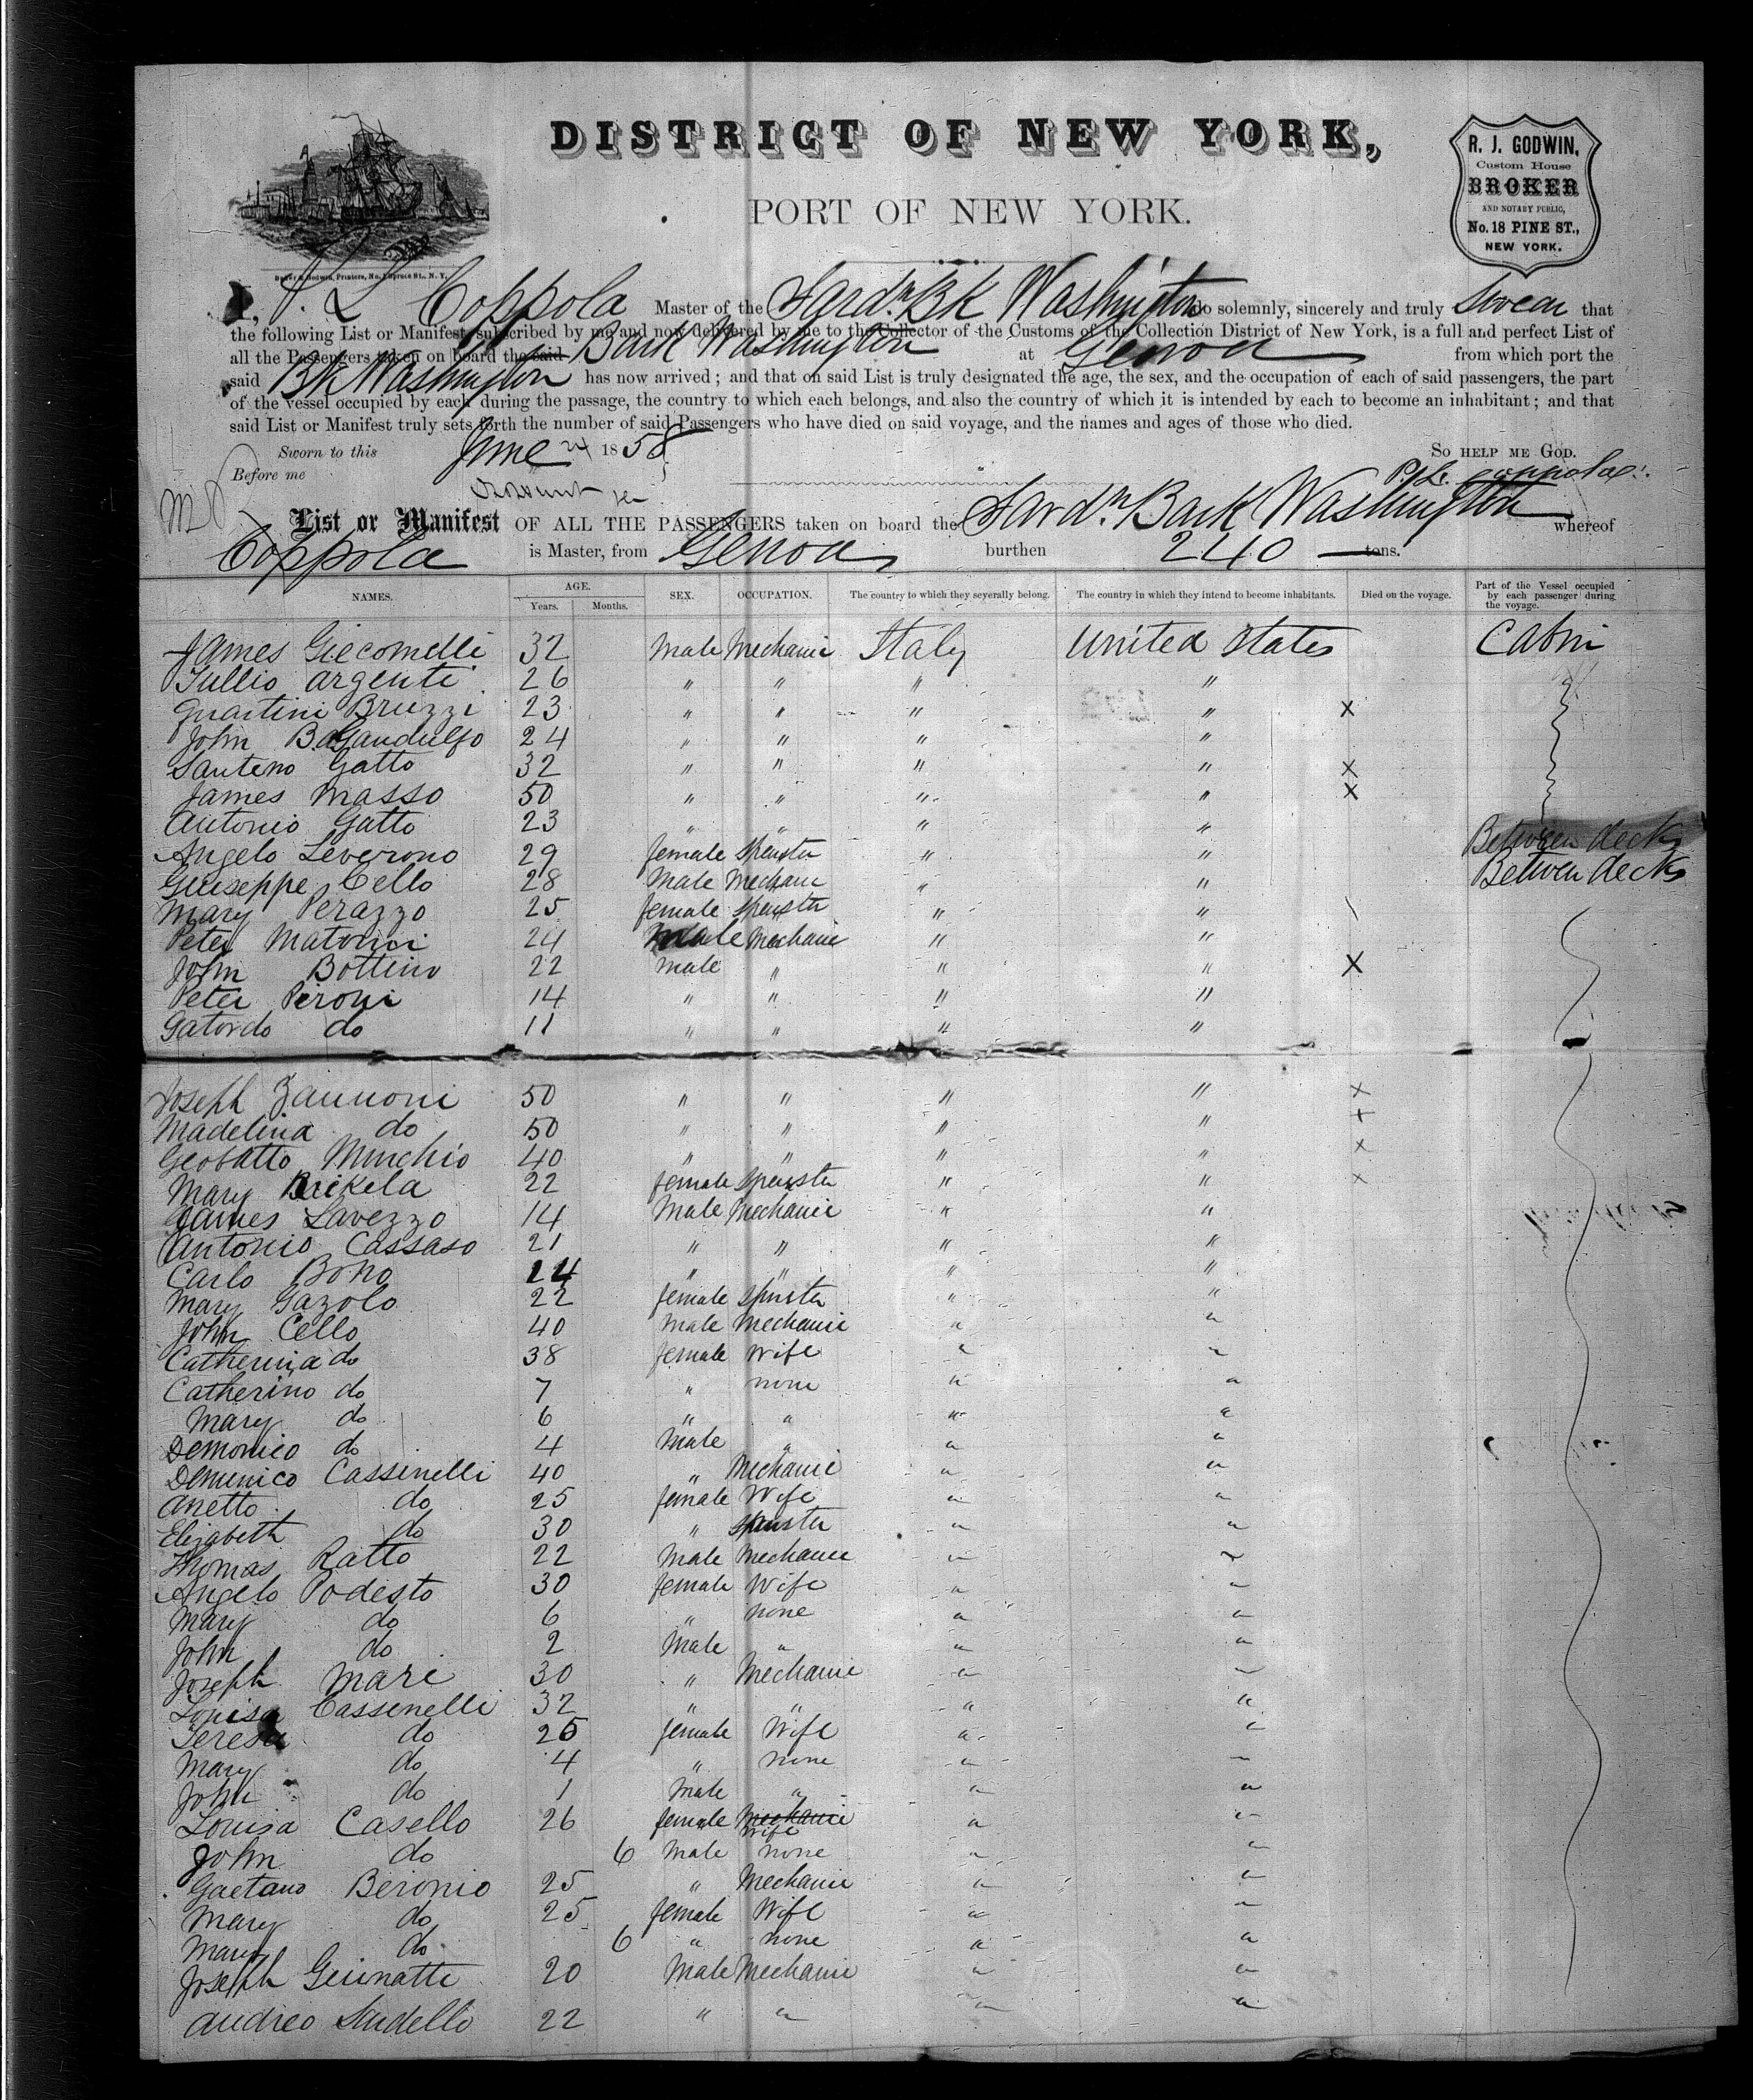 DISTRICT OF NEW YORK,
PORT OF NEW YORK.
R. J. GODWIN,
Custom House
BROKER
AND NOTARY PUBLIC,
No. 18 PINE ST.,
NEW YORK.
Baker & Godwin, Printers, No. 1 Spruce St., N. Y.
I, P. L. Coppola Master of the Sardn. Bk Washington do solemnly, sincerely and truly swear that
the following List or Manifest subscribed by me and now delivered by me to the Collector of the Customs of the Collection District of New York, is a full and perfect List of
all the Passengers taken on board the said Bark Washington at Genoa from which port the
said Bk Washington has now arrived; and that on said List is truly designated the age, the sex, and the occupation of each of said passengers, the part
of the vessel occupied by each during the passage, the country to which each belongs, and also the country of which it is intended by each to become an inhabitant; and that
said List or Manifest truly sets forth the number of said Passengers who have died on said voyage, and the names and ages of those who died.
Sworn to this June 24 1858 So help me God.
Before me P. L. Coppola
List or Manifest OF ALL THE PASSENGERS taken on board the Sardn. Bark Washington whereof
Coppola is Master, from Genoa burthen 240 tons.
NAMES. AGE. Years. Months. SEX. OCCUPATION. The country to which they severally belong. The country in which they intend to become inhabitants. Died on the voyage. Part of the Vessel occupied by each passenger during the voyage.
James Giecomelli 32 Male Mechanic Italy United States Cabin
Tullio Argenti 26 " " " "
Guartini Bruzzi 23 " " " " X
John Ba Gandulfo 24 " " " "
Santino Gatto 32 " " " " X
James Masso 50 " " " " X
Antonio Gatto 23 " " " "
Angelo Leverono 29 female Spinster " " Between decks
Giuseppe Cello 28 Male Mechanic " " Between decks
Mary Perazzo 25 female Spinster " "
Peter Matorici 24 Male Mechanic " "
John Bottino 22 male " " " X
Peter Peroni 14 " " " "
Gatordo do 11 " " " "
Joseph Zannoni 50 " " " " X
Madelina do 50 " " " " X
Geobatto Munchio 40 " " " " X
Mary Brikela 22 female Spinster " " X
James Lavezzo 14 Male Mechanic " "
Antonio Cassaso 21 " " " "
Carlo Bono 24 " " " "
Mary Gazolo 22 female Spinster " "
John Cello 40 male Mechanic " "
Catherina do 38 female Wife " "
Catherino do 7 " none " "
Mary do 6 " " " "
Demonico do 4 Male " " "
Demunico Cassinelli 40 " Mechanic " "
Anetto do 25 female Wife " "
Elizabeth do 30 " Spinster " "
Thomas Ratto 22 Male Mechanic " "
Angelo Podesto 30 female Wife " "
Mary do 6 " none " "
John do 2 Male " " "
Joseph Mare 30 " Mechanic " "
Louisa Cassenelli 32 " " " "
Teresa do 25 female Wife " "
Mary do 4 " none " "
John do 1 Male " " "
Louisa Casello 26 female Mechanic Wife " "
John do 6 Male none " "
Gaetano Beronio 25 " Mechanic " "
Mary do 25 female Wife " "
Mary do 6 " none " "
Joseph Geunatti 20 Male Mechanic " "
Andreo Sudello 22 " " " "